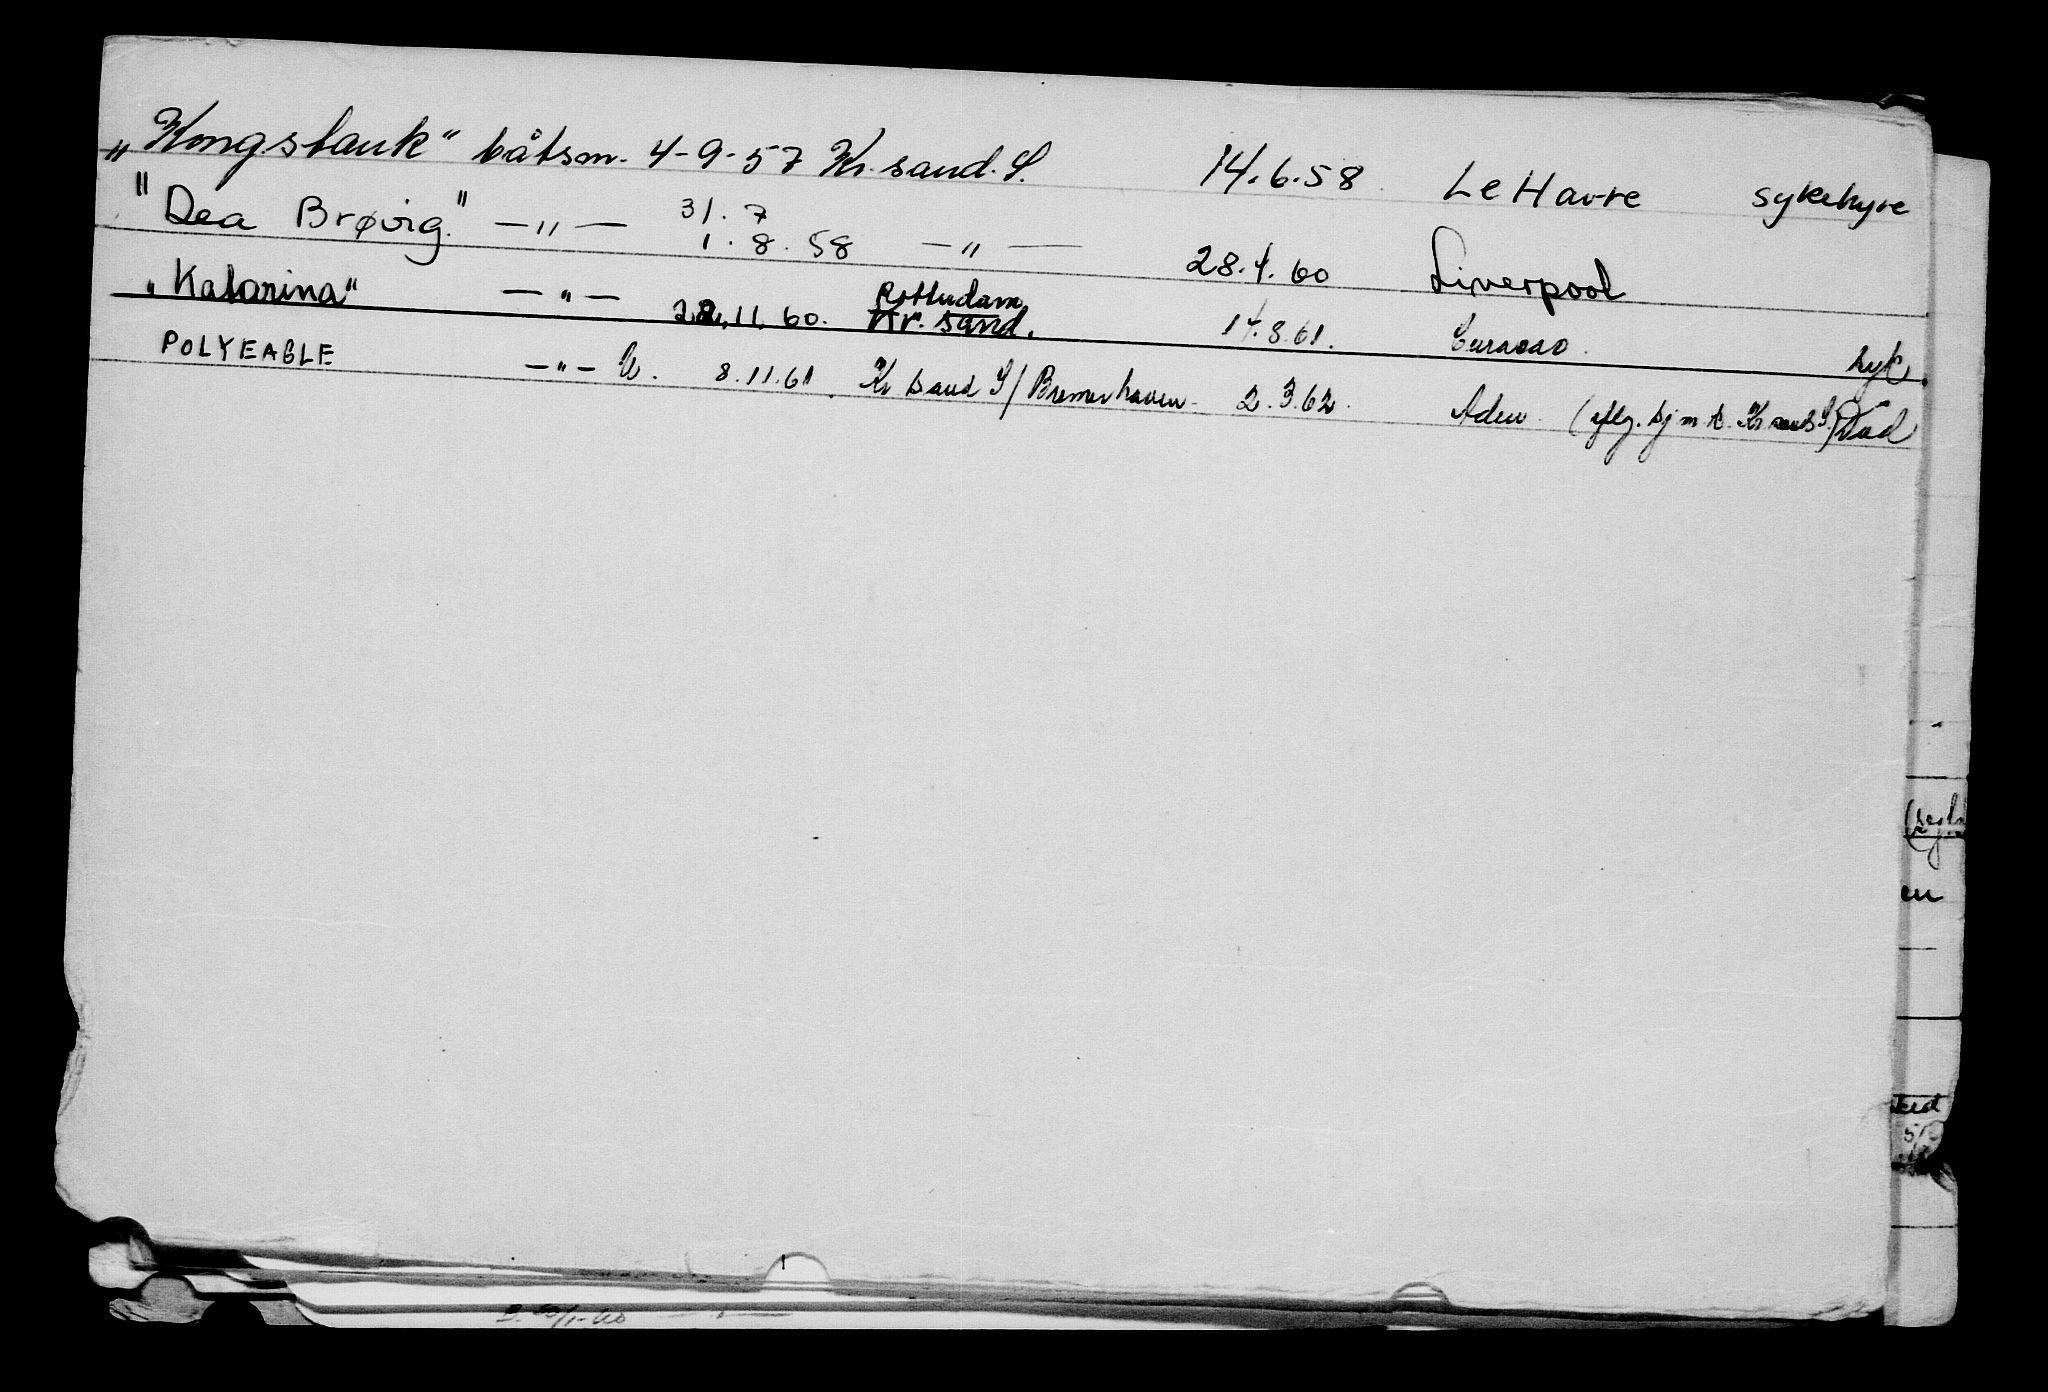 „Kongstank" båtsm. 4-9-57 Kr.sand.S. 14.6.58 Le Havre sykehyre
"Dea Brøvig." —"— 31.7 1.8.58 —"— 28.4.60 Liverpool
„Katarina" —"— 22.11.60. Rotterdam Kr.sand. 14.8.61. Curacao. syk
POLYEAGLE —"— U. 8.11.61. Kr sand S/Bremerhaven 2.3.62. Aden. (eflg. sj m k. Kr sand S.) Død
en